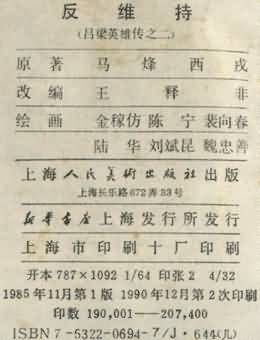 反维持
（吕梁英雄传之二）
原著 马烽 西戎
改编 王释非
绘画 金稼仿 陈宁 裴向春
陆华 刘斌昆 魏忠善
上海人民美术出版社出版
上海长乐路672弄33号
新华书店上海发行所发行
上海市印刷十厂印刷
开本 787×1092 1/64 印张 2 4/32
1985年11月第1版 1990年12月第2次印刷
印数 190,001—207,400
ISBN 7-5322-0694-7/J·644(儿)